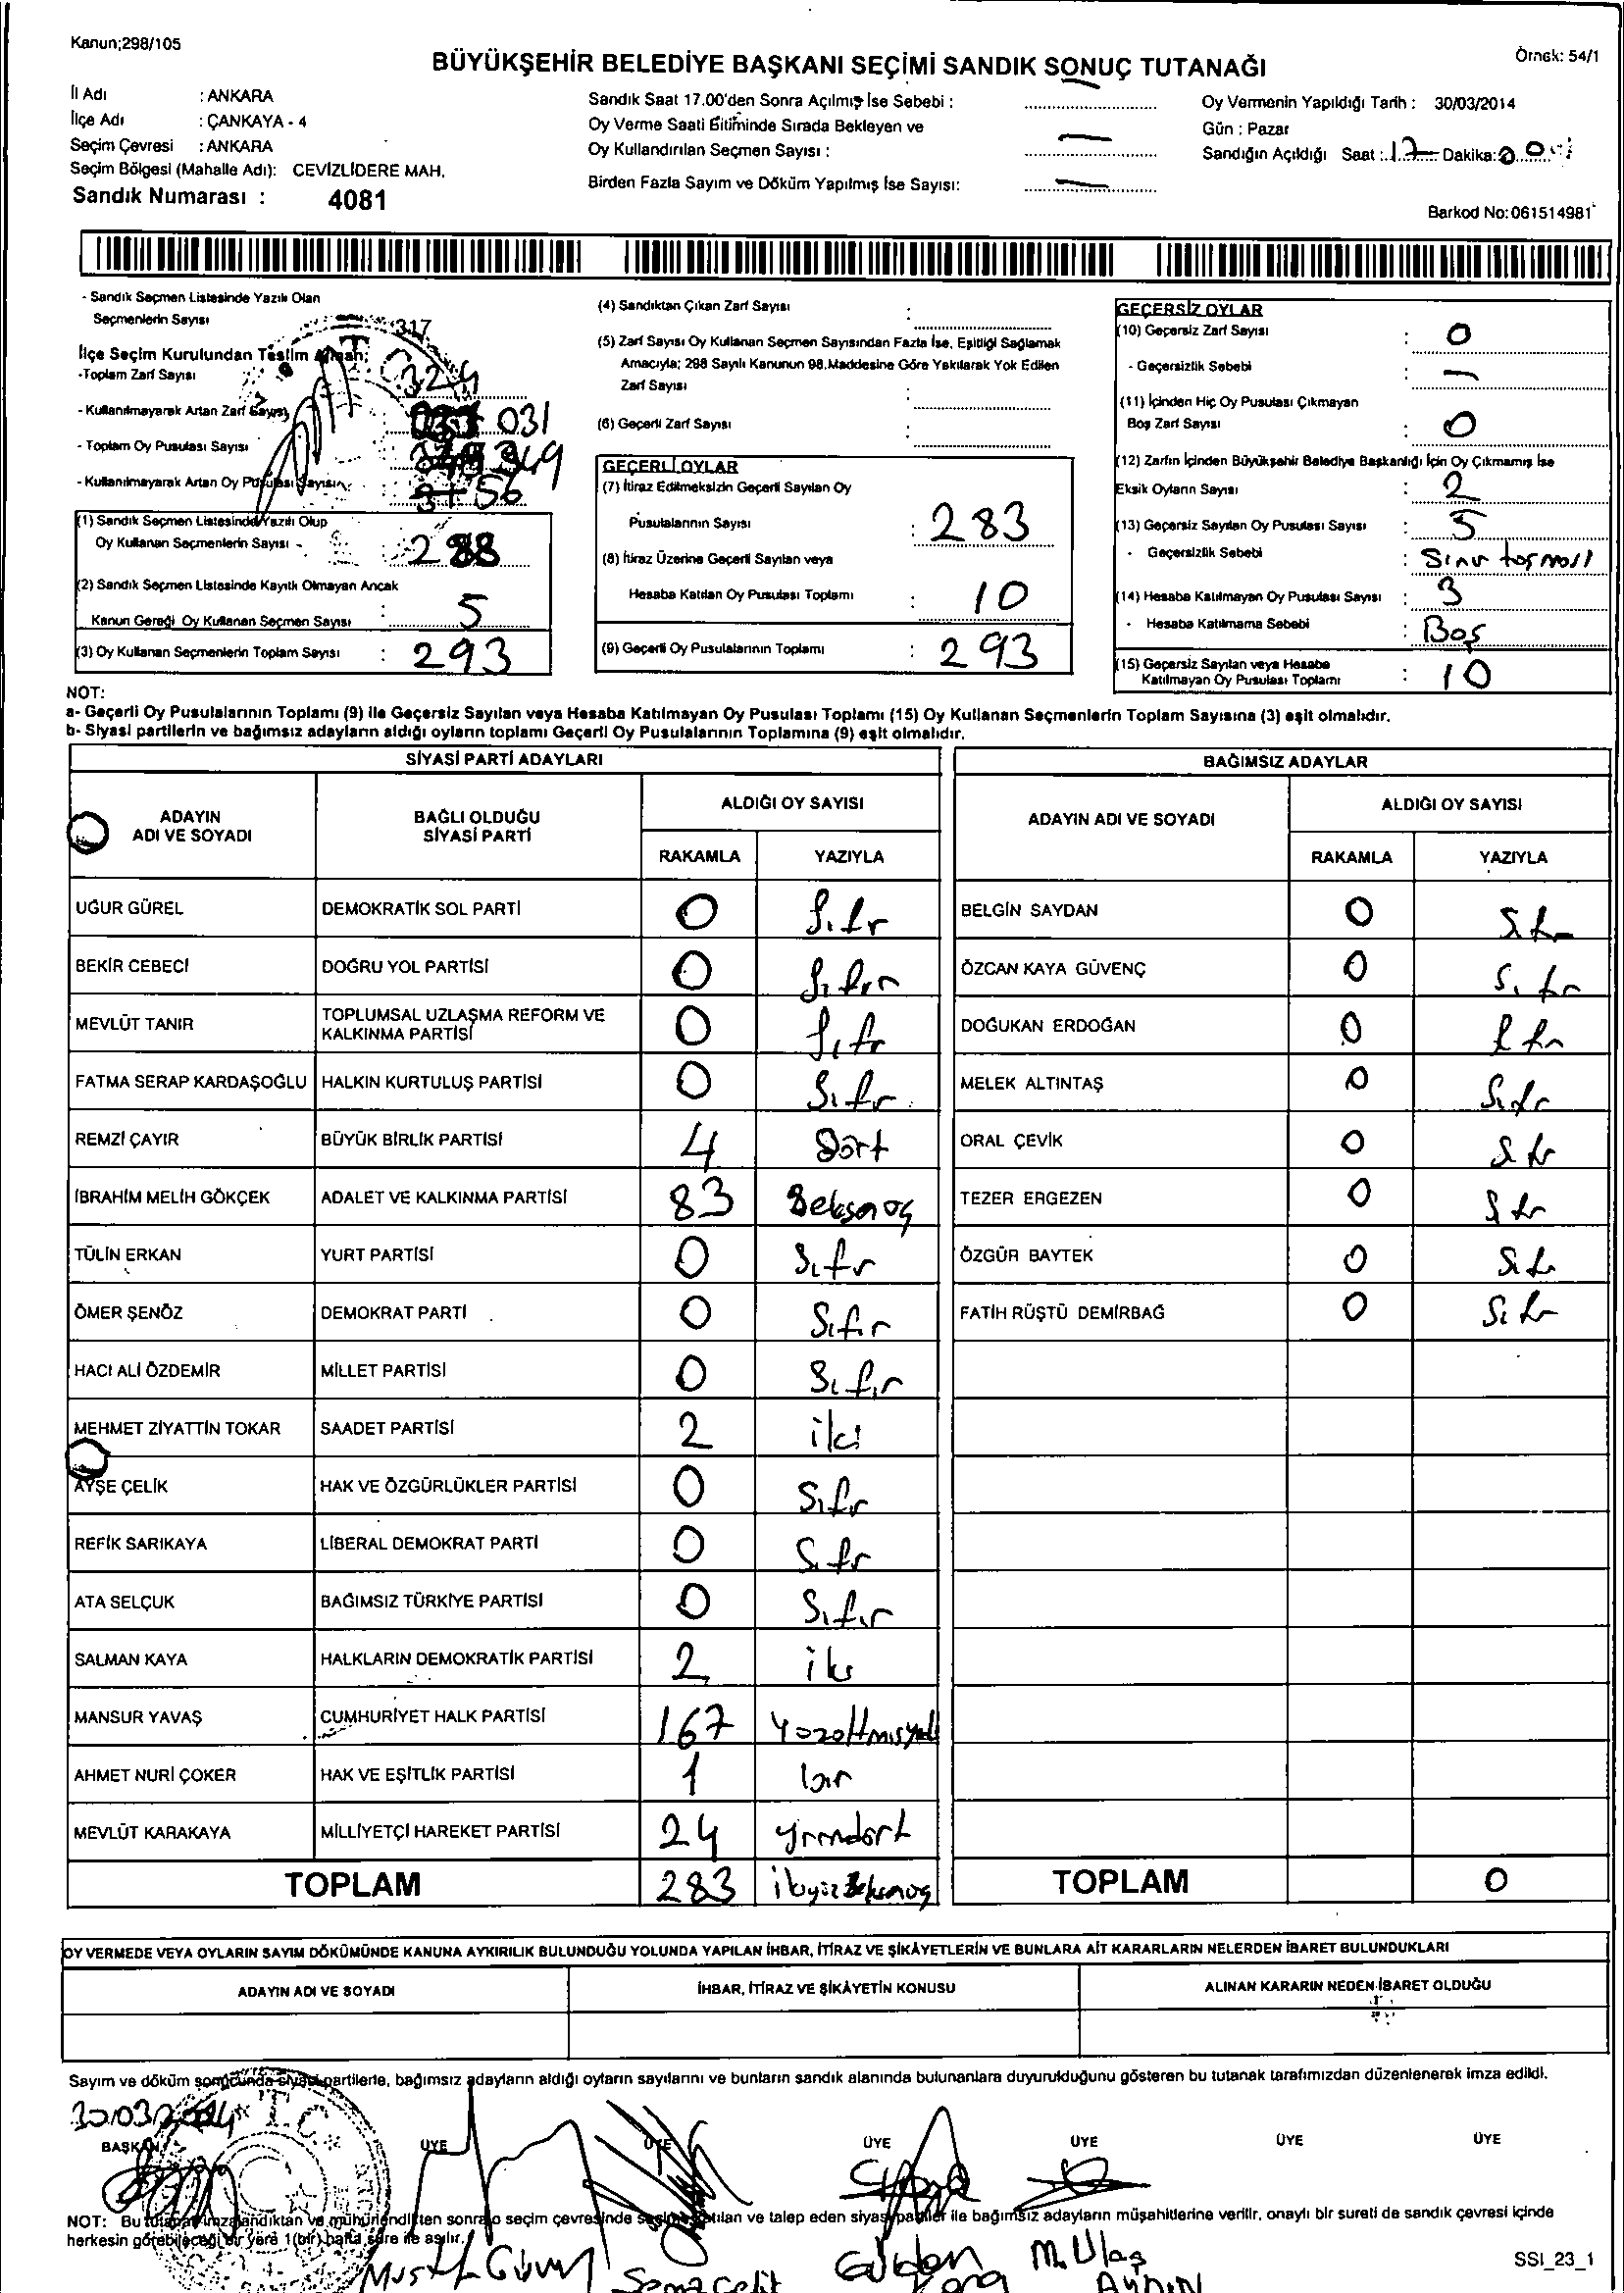 Kanun;298/105
BÜYÜKŞEHİR BELEDİYE BAŞKANI SEÇİMİ SANDIK SONUÇ TUTANAĞI
Örnek: 54/1
İl Adı : ANKARA
İlçe Adı : ÇANKAYA - 4
Seçim Çevresi : ANKARA
Seçim Bölgesi (Mahalle Adı): CEVİZLİDERE MAH.
Sandık Numarası : 4081
Sandık Saat 17.00'den Sonra Açılmış İse Sebebi :
Oy Verme Saati Bitiminde Sırada Bekleyen ve
Oy Kullandırılan Seçmen Sayısı : —
Birden Fazla Sayım ve Döküm Yapılmış İse Sayısı: —
Oy Vermenin Yapıldığı Tarih : 30/03/2014
Gün : Pazar
Sandığın Açıldığı Saat : 17 Dakika:
Barkod No:061514981
- Sandık Seçmen Listesinde Yazılı Olan
Seçmenlerin Sayısı 317
İlçe Seçim Kurulundan Teslim Alınan;
-Toplam Zarf Sayısı 324
- Kullanılmayarak Artan Zarf Sayısı 031
- Toplam Oy Pusulası Sayısı 349
- Kullanılmayarak Artan Oy Pusulası Sayısı 56
(1) Sandık Seçmen Listesinde Yazılı Olup
Oy Kullanan Seçmenlerin Sayısı 288
(2) Sandık Seçmen Listesinde Kayıtlı Olmayan Ancak
Kanun Gereği Oy Kullanan Seçmen Sayısı : 5
(3) Oy Kullanan Seçmenlerin Toplam Sayısı : 293
(4) Sandıktan Çıkan Zarf Sayısı :
(5) Zarf Sayısı Oy Kullanan Seçmen Sayısından Fazla İse, Eşitliği Sağlamak
Amacıyla; 298 Sayılı Kanunun 98.Maddesine Göre Yakılarak Yok Edilen
Zarf Sayısı :
(6) Geçerli Zarf Sayısı :
GEÇERLİ OYLAR
(7) İtiraz Edilmeksizin Geçerli Sayılan Oy
Pusulalarının Sayısı : 283
(8) İtiraz Üzerine Geçerli Sayılan veya
Hesaba Katılan Oy Pusulası Toplamı : 10
(9) Geçerli Oy Pusulalarının Toplamı : 293
GEÇERSİZ OYLAR
(10) Geçersiz Zarf Sayısı : 0
- Geçersizlik Sebebi : —
(11) İçinden Hiç Oy Pusulası Çıkmayan
Boş Zarf Sayısı : 0
(12) Zarfın İçinden Büyükşehir Belediye Başkanlığı İçin Oy Çıkmamış İse
Eksik Oyların Sayısı : 2
(13) Geçersiz Sayılan Oy Pusulası Sayısı : 5
- Geçersizlik Sebebi :
(14) Hesaba Katılmayan Oy Pusulası Sayısı : 3
- Hesaba Katılmama Sebebi : Boş
(15) Geçersiz Sayılan veya Hesaba
Katılmayan Oy Pusulası Toplamı : 10
NOT:
a- Geçerli Oy Pusulalarının Toplamı (9) ile Geçersiz Sayılan veya Hesaba Katılmayan Oy Pusulası Toplamı (15) Oy Kullanan Seçmenlerin Toplam Sayısına (3) eşit olmalıdır.
b- Siyasi partilerin ve bağımsız adayların aldığı oyların toplamı Geçerli Oy Pusulalarının Toplamına (9) eşit olmalıdır.
SİYASİ PARTİ ADAYLARI
ADAYIN ADI VE SOYADI BAĞLI OLDUĞU SİYASİ PARTİ ALDIĞI OY SAYISI
RAKAMLA YAZIYLA
UĞUR GÜREL DEMOKRATİK SOL PARTİ 0 Sıfır
BEKİR CEBECİ DOĞRU YOL PARTİSİ 0 Sıfır
MEVLÜT TANIR TOPLUMSAL UZLAŞMA REFORM VE KALKINMA PARTİSİ 0 Sıfır
FATMA SERAP KARDAŞOĞLU HALKIN KURTULUŞ PARTİSİ 0 Sıfır
REMZİ ÇAYIR BÜYÜK BİRLİK PARTİSİ 4 Dört
İBRAHİM MELİH GÖKÇEK ADALET VE KALKINMA PARTİSİ 83 Seksenüç
TÜLİN ERKAN YURT PARTİSİ 0 Sıfır
ÖMER ŞENÖZ DEMOKRAT PARTİ 0 Sıfır
HACI ALİ ÖZDEMİR MİLLET PARTİSİ 0 Sıfır
MEHMET ZİYATTİN TOKAR SAADET PARTİSİ 2 iki
AYŞE ÇELİK HAK VE ÖZGÜRLÜKLER PARTİSİ 0 Sıfır
REFİK SARIKAYA LİBERAL DEMOKRAT PARTİ 0 Sıfır
ATA SELÇUK BAĞIMSIZ TÜRKİYE PARTİSİ 0 Sıfır
SALMAN KAYA HALKLARIN DEMOKRATİK PARTİSİ 2 iki
MANSUR YAVAŞ CUMHURİYET HALK PARTİSİ 167 Yüzaltmışyedi
AHMET NURİ ÇOKER HAK VE EŞİTLİK PARTİSİ 1 bir
MEVLÜT KARAKAYA MİLLİYETÇİ HAREKET PARTİSİ 24 yirmidört
TOPLAM 283 ikiyüzseksenüç
BAĞIMSIZ ADAYLAR
ADAYIN ADI VE SOYADI ALDIĞI OY SAYISI
RAKAMLA YAZIYLA
BELGİN SAYDAN 0 Sıfır
ÖZCAN KAYA GÜVENÇ 0 Sıfır
DOĞUKAN ERDOĞAN 0 Sıfır
MELEK ALTINTAŞ 0 Sıfır
ORAL ÇEVİK 0 Sıfır
TEZER ERGEZEN 0 Sıfır
ÖZGÜR BAYTEK 0 Sıfır
FATİH RÜŞTÜ DEMİRBAĞ 0 Sıfır
TOPLAM 0
OY VERMEDE VEYA OYLARIN SAYIM DÖKÜMÜNDE KANUNA AYKIRILIK BULUNDUĞU YOLUNDA YAPILAN İHBAR, İTİRAZ VE ŞİKÂYETLERİN VE BUNLARA AİT KARARLARIN NELERDEN İBARET BULUNDUKLARI
ADAYIN ADI VE SOYADI İHBAR, İTİRAZ VE ŞİKÂYETİN KONUSU ALINAN KARARIN NEDEN İBARET OLDUĞU
Sayım ve döküm sonucunda siyasi partilerle, bağımsız adayların aldığı oyların sayılarını ve bunların sandık alanında bulunanlara duyurulduğunu gösteren bu tutanak tarafımızdan düzenlenerek imza edildi.
30/03/2014
BAŞKAN ÜYE ÜYE ÜYE ÜYE ÜYE ÜYE
NOT: Bu tutanak imzalandıktan ve mühürlendikten sonra o seçim çevresinde seçime katılan ve talep eden siyasi partiler ile bağımsız adayların müşahitlerine verilir, onaylı bir sureti de sandık çevresi içinde
herkesin görebileceği bir yere 1(bir) hafta süre ile asılır.
Gülden M. Ulaş
SSI_23_1